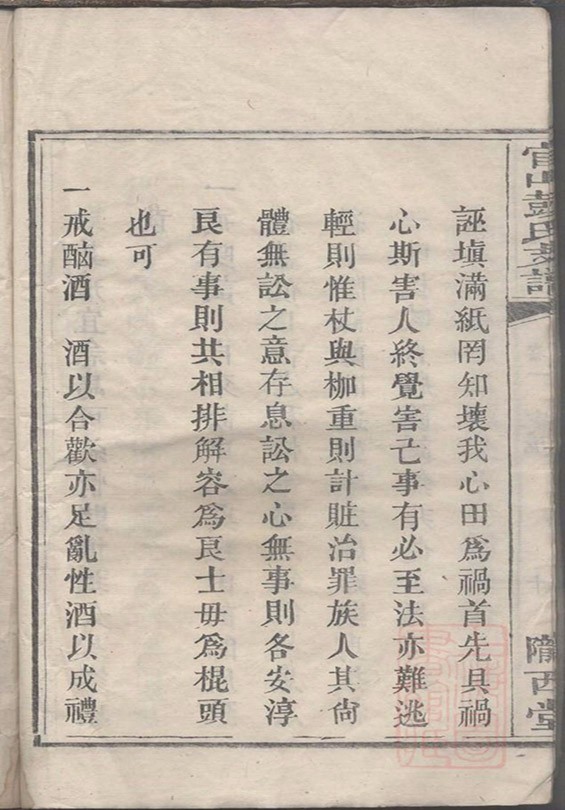 官山彭氏支譜
隴西堂
誣塡滿紙罔知壞我心田爲禍首先具禍
心斯害人終覺害己事有必至法亦難逃
輕則惟杖與枷重則計賍治罪族人其尙
體無訟之意存息訟之心無事則各安淳
良有事則共相排解容爲良士毋爲棍頭
也可
一戒酗酒 酒以合歡亦足亂性酒以成禮